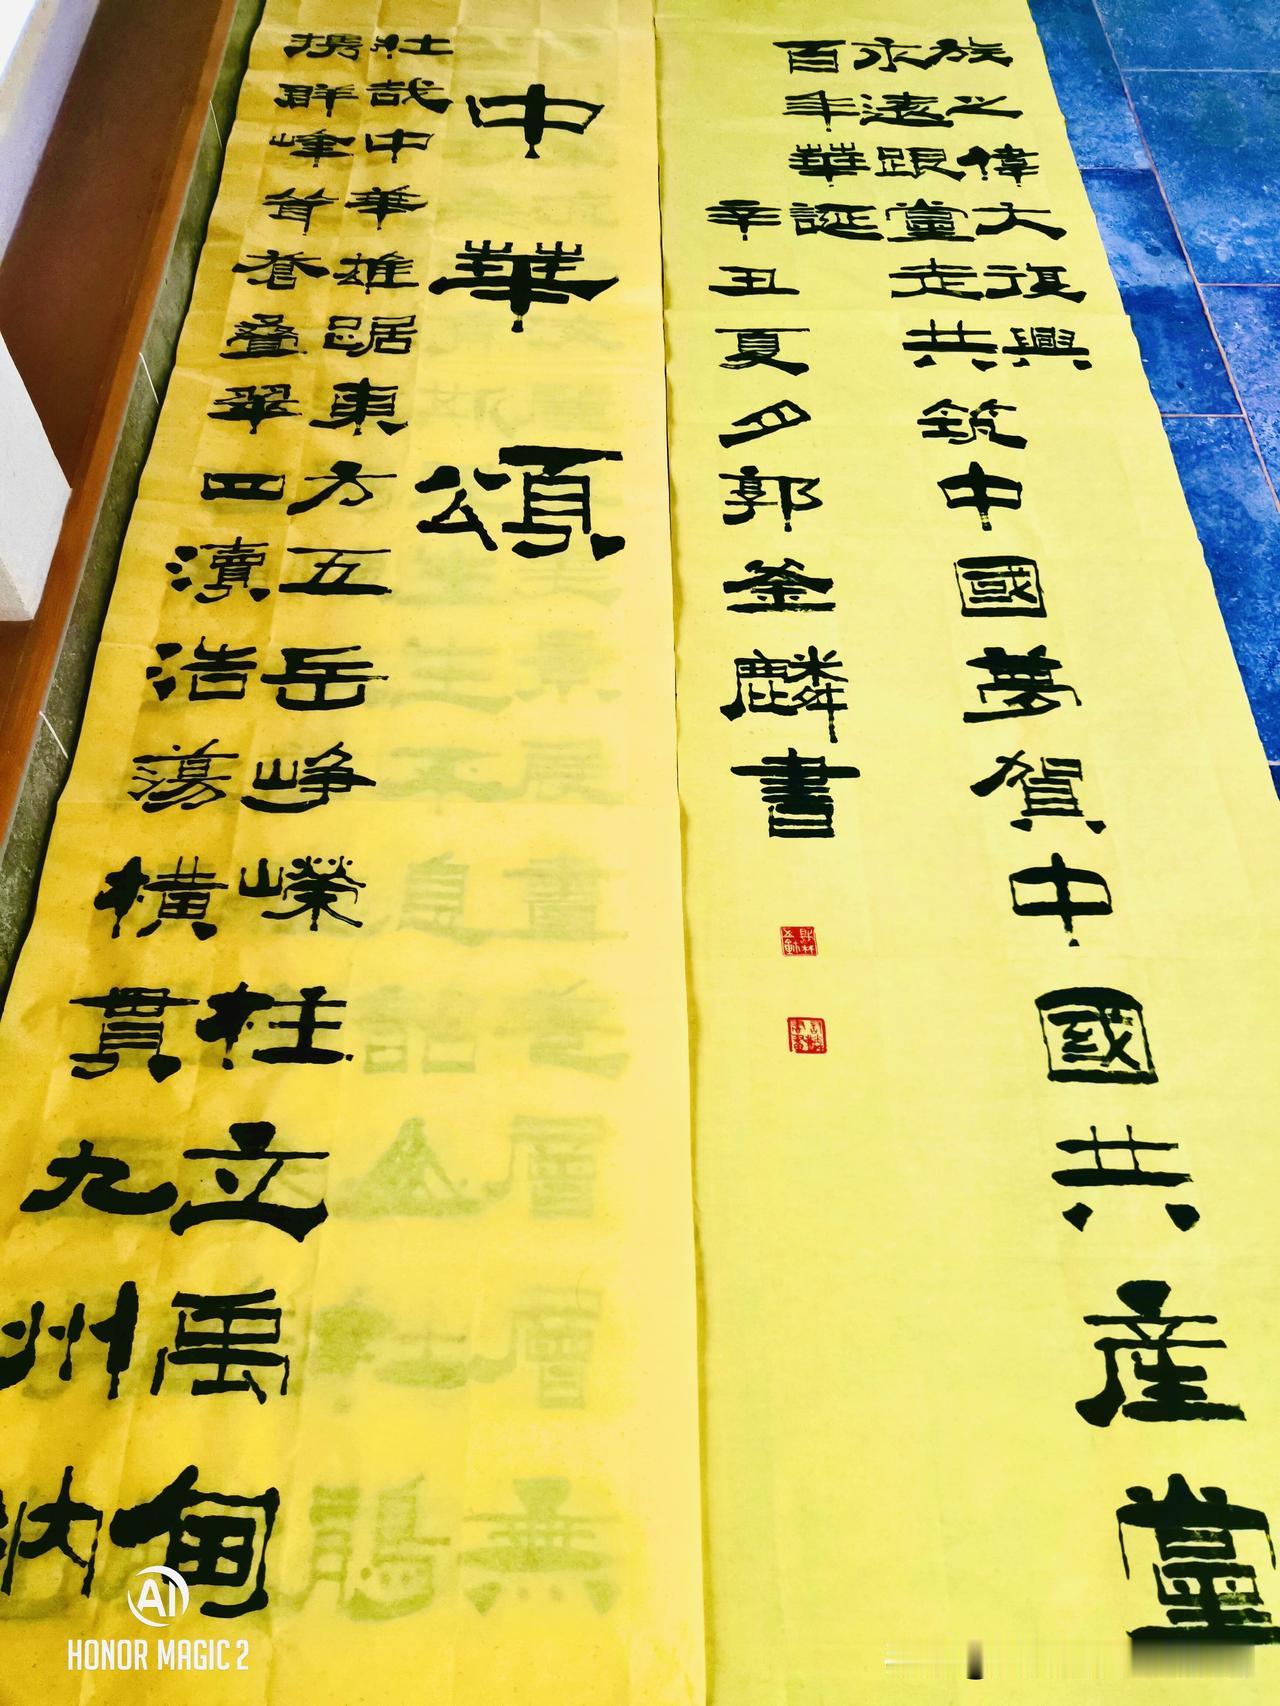 中華頌
壯哉中華雄踞東方五岳崢嶸柱立禹甸
携群峰耸蒼叠翠四瀆浩蕩橫貫九州
族之偉大復興
永遠跟黨走共筑中國夢賀中國共産黨
百年華誕
辛丑夏月郭釜麟書
AI
HONOR MAGIC 2